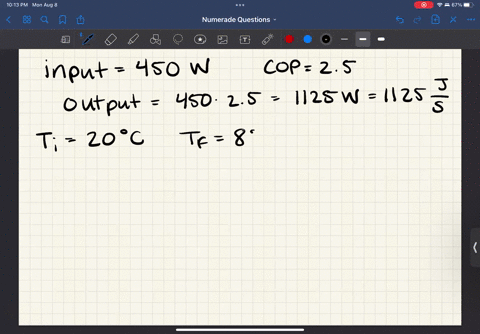 10:13 PM Mon Aug 8
67%
Numerade Questions
input = 450 W COP = 2.5
output = 450 · 2.5 = 1125 W = 1125 J/S
Ti = 20°C TF = 8°